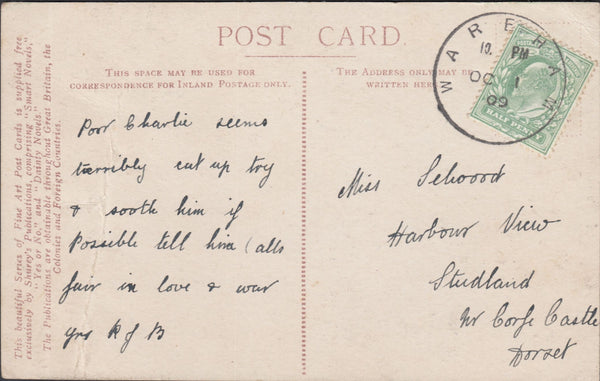 POST CARD
THIS SPACE MAY BE USED FOR
CORRESPONDENCE FOR INLAND POSTAGE ONLY.
THE ADDRESS ONLY MAY BE
WRITTEN HERE
This beautiful Series of Fine Art Post Cards is supplied free
exclusively by Shurey's Publications, comprising "Smart Novels,"
"Yes or No," and "Dainty Novels"
The Publications are obtainable throughout Great Britain, the
Colonies and Foreign Countries.
WAREHAM
10. PM
OC 1
09
HALF PENNY
Poor Charlie seems
terribly cut up try
& sooth him if
Possible tell him (alls
fair in love & war
yrs R of B
Miss
Harbour View
Studland
Nr Corfe Castle
Dorset